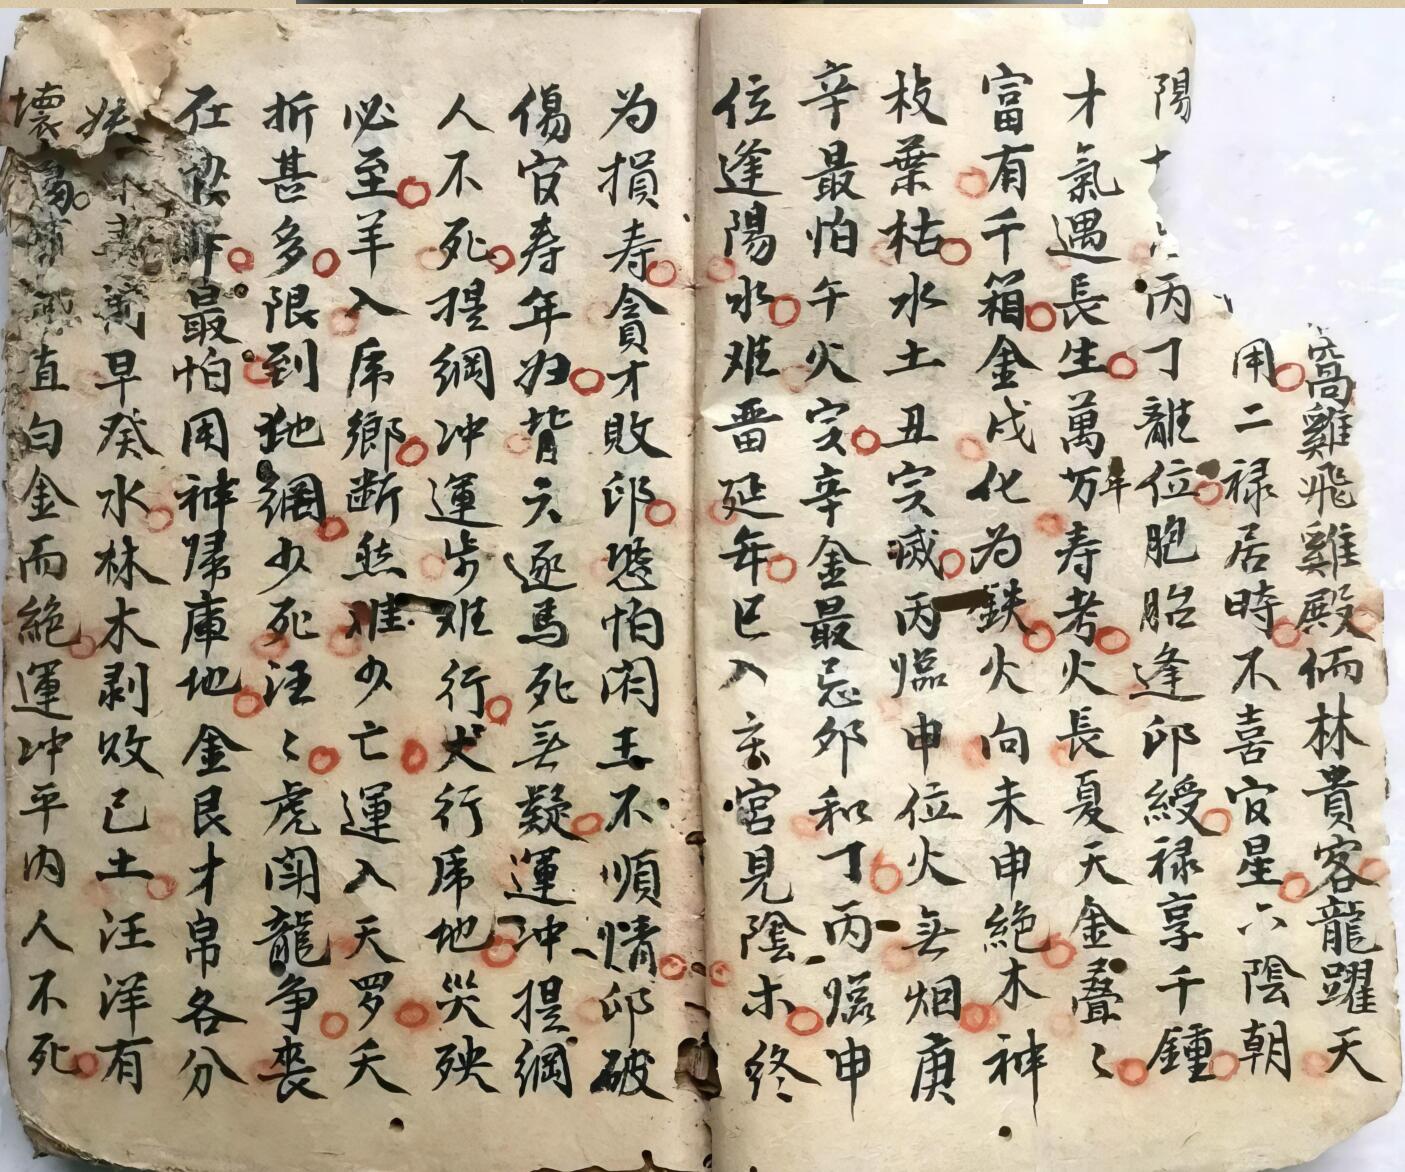 窩雞飛雞殿倆林貴客龍躍天
用二禄居時不喜官星六陰朝
陽十丙丁離位胞胎逢卯綬禄享千鍾
才氣遇長生萬万年寿考火長夏天金叠〻
富有千箱金戊化为鉄火向未申絶木神
枝葉枯水土丑宫滅丙臨申位火無烟庚
辛最怕午火宫辛金最忌卯和丁丙臨申
位逢陽水难晋延年巳入亥宫見陰木终
为損寿貪才敗卯恐怕閻王不順情卯破
傷官寿年归背六逐馬死無疑運冲提綱
人不死提綱冲運步难行犬行虎地災殃
必至羊入虎鄉断然难少亡運入天罗天
折甚多限到地綱少死汪〻虎鬧龍争喪
在最怕用神帰庫地金艮才帛各分
早癸水林木剥敗己土汪洋有
壊直勾金而絶運冲平内人不死